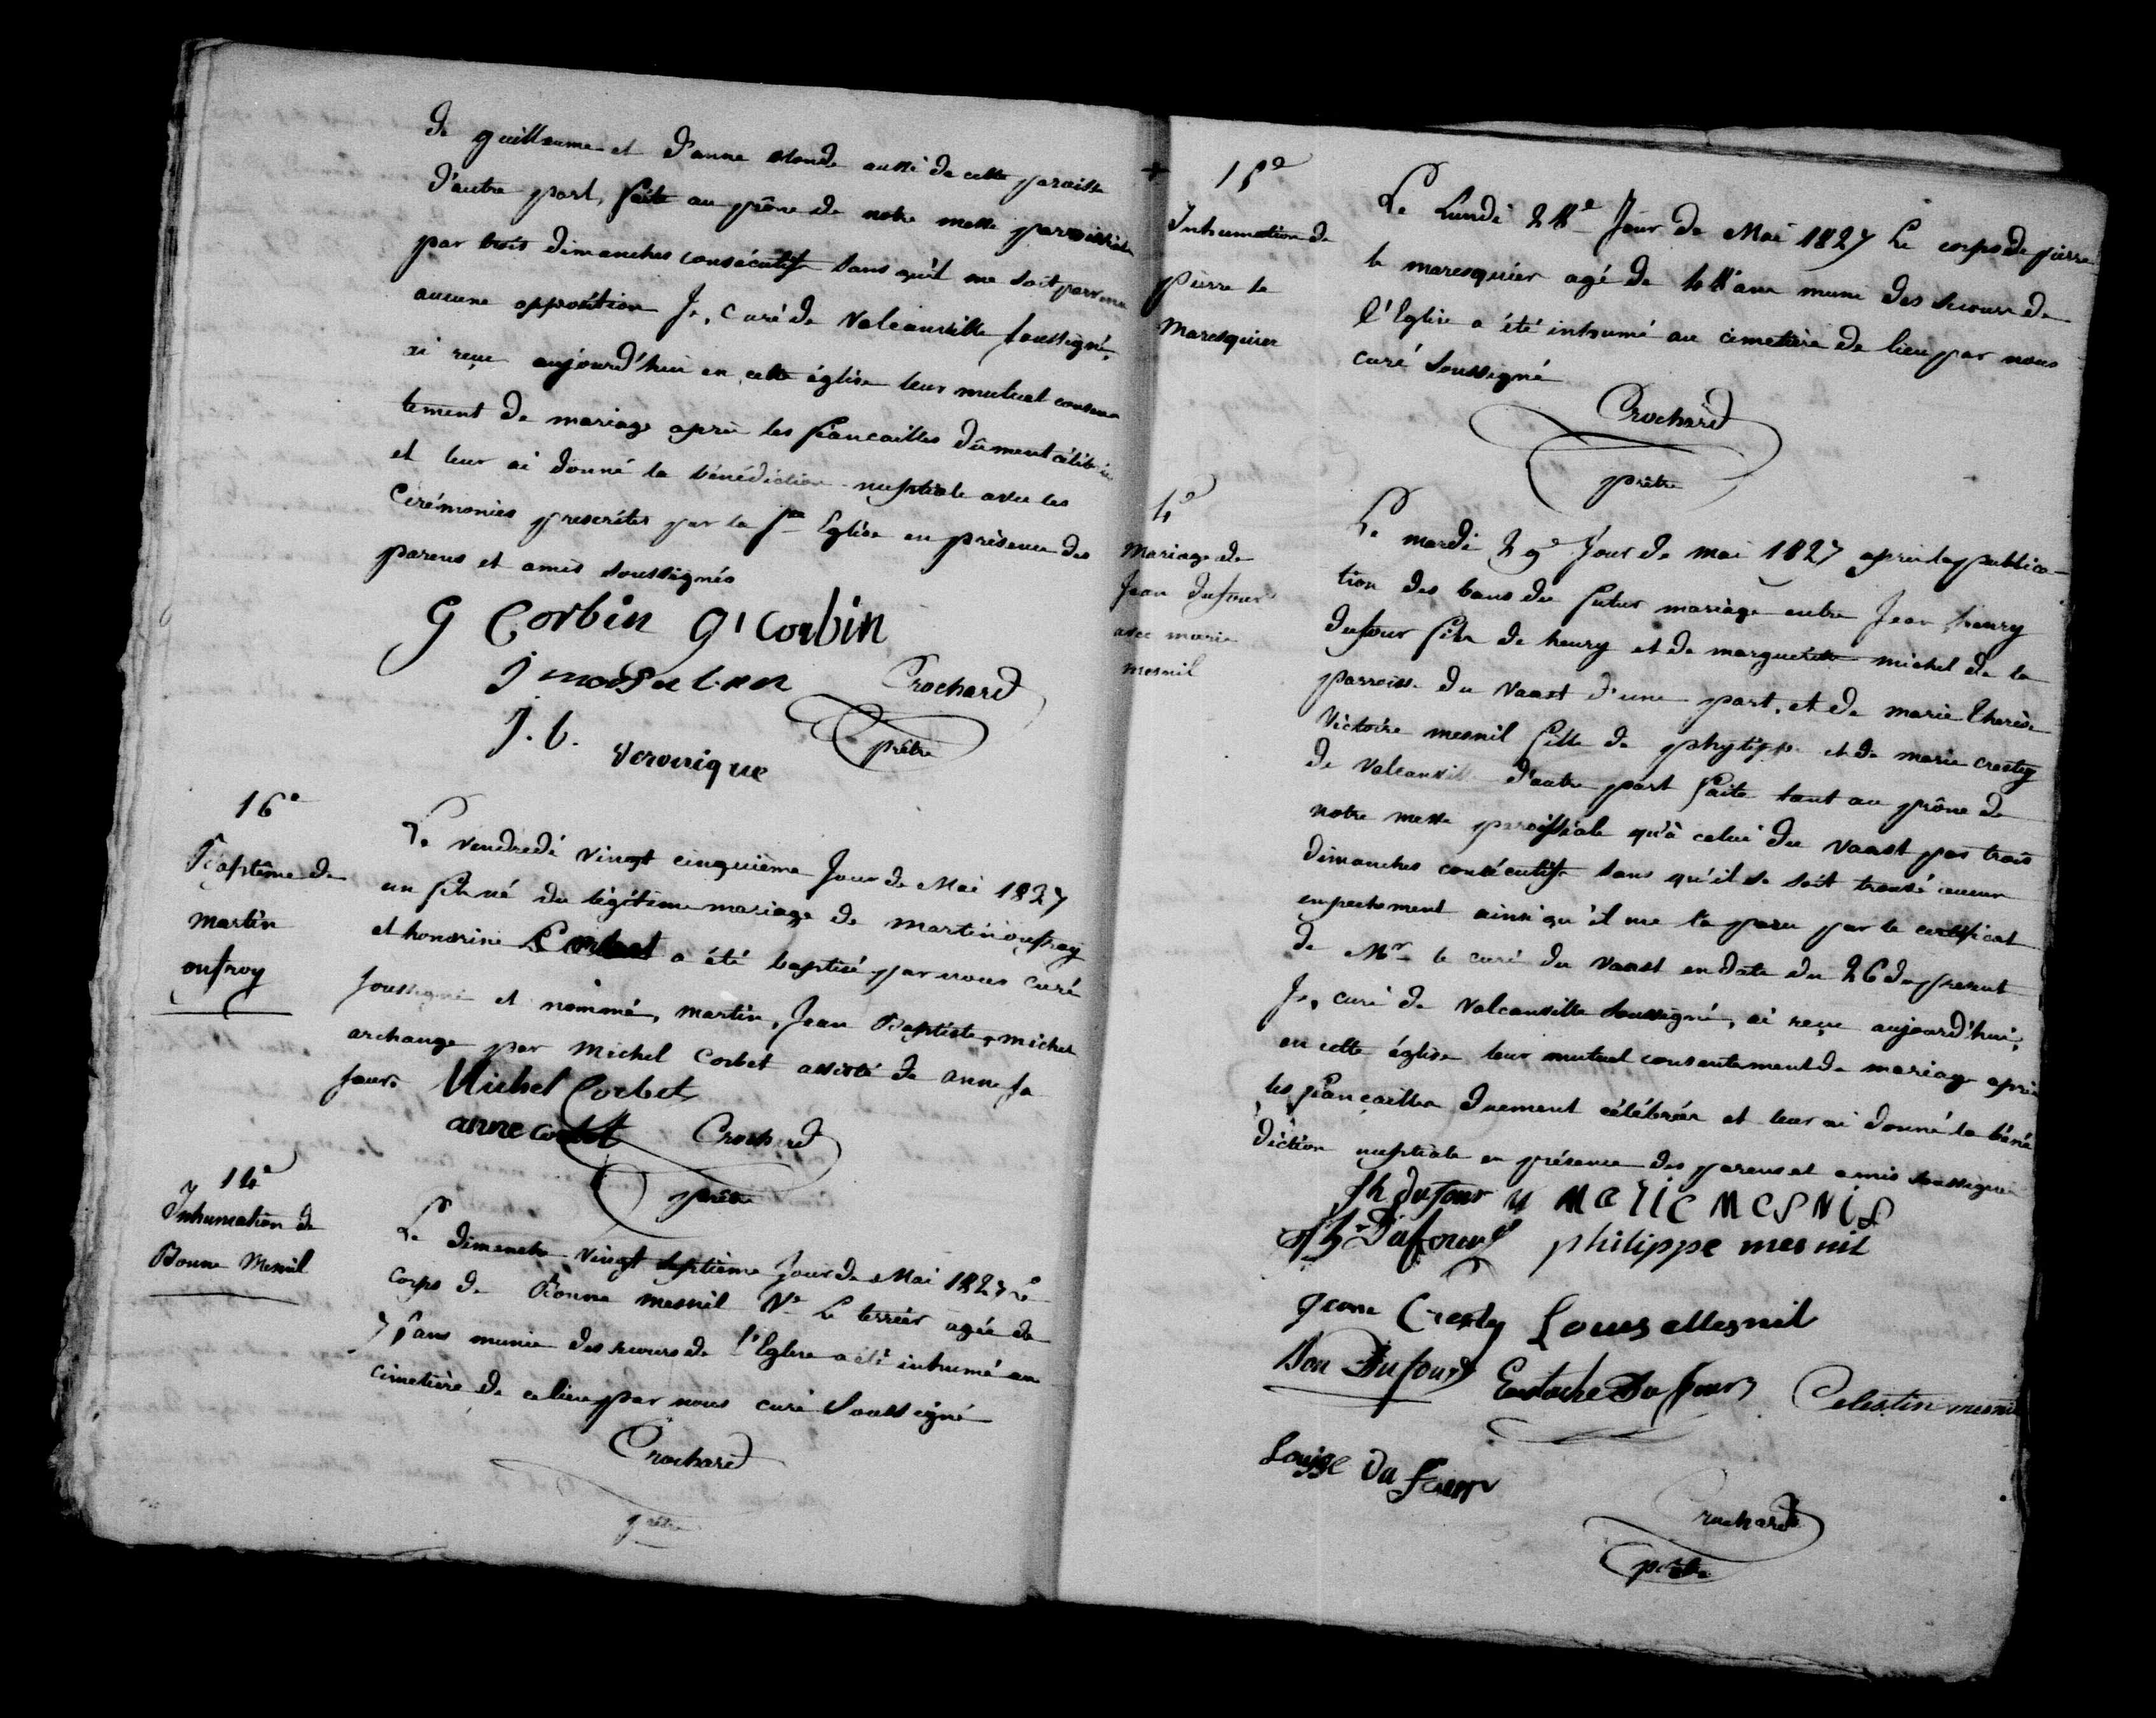 de guillaume et d'anne blonde aussi de cette paroisse
d'autre part, faite au prône de notre messe parroissiale
par trois dimanches consécutifs sans qu'il me soit parvenu
aucune opposition Je, curé de Valcanville soussigné,
ai reçu aujourd'hui en cette église leur mutuel consen
tement de mariage après les fiancailles dûment célébrées
et leur ai donné la bénédiction nuptiale avec les
Cérémonies prescrites par la Ste Eglise en présence des
parens et amis soussignés
G Corbin G Corbin
J
Crochard
J. b. Veronique
prêtre
16e
Baptême de
Martin
onfroy
Le vendredi vingt cinquième Jour de Mai 1827
un fils né du légitime mariage de martin onfroy
et honorine Corbet a été baptisé par nous curé
soussigné et nommé, martin, Jean Baptiste, michel
archange par Michel Corbet assisté de anne sa
sœur. Michel Corbet
anne corbet Crochard
prêtre
14e
Inhumation de
Bonne Mesnil
Le dimanche vingt septième Jour de Mai 1827 Le
corps de Bonne mesnil Ve Le terrier agée de
75 ans munie des secours de l'Eglise a été inhumé au
cimetière de ce lieu par nous curé soussigné
Crochard
prêtre
15e
Inhumation de
pierre le
Maresquier
Le Lundi 28e Jour de Mai 1827 Le corps de pierre
le maresquier agé de ans muni des secours de
l'Eglise a été inhumé au cimetière de lieu par nous
curé soussigné
Crochard
prêtre
4e
Mariage de
Jean dufour
avec marie
mesnil
Le mardi 29e Jour de mai 1827 après la publica-
tion des bans du futur mariage entre Jean henry
dufour fils de henry et de marguerite michel de la
parroisse du Vaast d'une part, et de marie therèse
Victoire mesnil fille de phylippe et de marie crestey
de Valcanville d'autre part faite tant au prône de
notre messe paroissiale qu'à celui du Vaast par trois
dimanches consécutifs sans qu'il se soit trouvé aucun
empechement ainsi qu'il me l'a paru par le certificat
de Mr le curé du Vaast en date du 26 du present
Je, curé de Valcanville soussigné, ai reçu aujourd'hui,
en cette église leur mutuel consentement de mariage après
les fiancailles duement célébrées et leur ai donné la béné
diction nuptiale en présence des parens et amis soussignés
Jh dufour Marie Mesnil
Dufour philippe mesnil
Jeanne Crestey Louis Mesnil
Bon Dufour Eustache Dufour Celestin mesnil
Louise du four
Crochard
prêtre